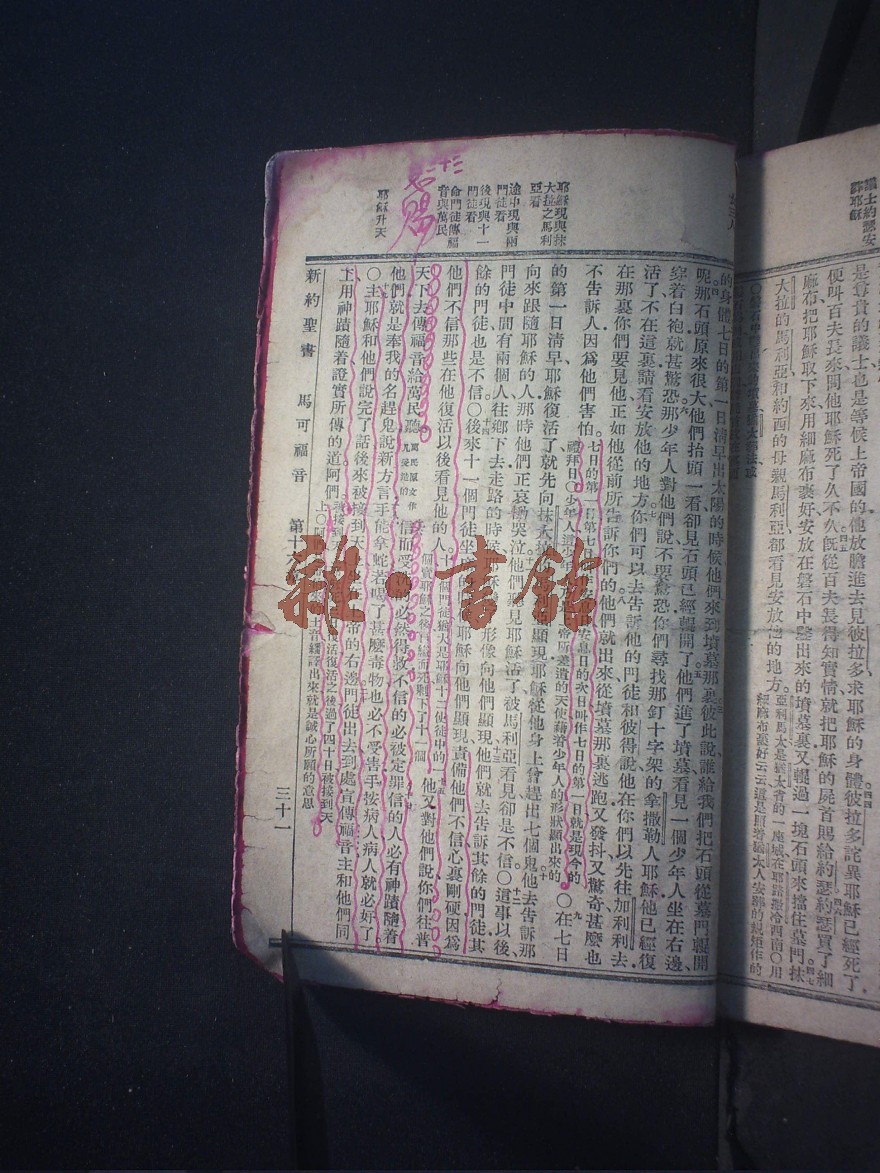 是尊貴的議士也是等候上帝國的他放膽進去見彼拉多求耶穌的身體彼拉多詫異耶穌已經死了
便叫百夫長來問他耶穌死了久不久旣從百夫長得知實情就把耶穌的屍首賜給約瑟約瑟買了細
麻布把耶穌取下來用細麻布裹好安放在磐石中鑿出來的墳墓裏又輥過一塊石頭來擋住墓門抹
大拉的馬利亞和約西的母親馬利亞都看見安放他的地方
的身體七日的第一日清早出太陽的時候他們來到墳墓那裏彼此說誰給我們把石頭從墓門輥開
呢那石頭原來很大他們抬頭一看卻見石頭已經輥開了他們進了墳墓看見一個少年人坐在右邊
穿着白袍就甚驚恐那少年人對他們說不要驚恐你們尋找那釘十字架的拿撒勒人耶穌他已經復
活了不在這裏請看安放他的地方你們可以去告訴他的門徒和彼得說他在你們以先往加利利去
在那裏你們要見他正如他從前所告訴你們的他們就出來從墳墓那裏逃跑又發抖又驚奇甚麼也
不告訴人因爲他們害怕
〇在七日
的第一日清早耶穌復活了就先向抹大拉
顯現耶穌從他身上曾趕出七個鬼他去告訴那
向來跟隨耶穌的人那時他們正哀慟哭泣他們聽見耶穌活了被馬利亞看見卻是不信〇這事以後
門徒中間有兩個人往鄉下去走路的時候
形像向他們顯現他們就去告訴其餘的門徒其
餘的門徒也是不信〇後來十一個門徒坐
耶穌向他們顯現責備他們不信心裏剛硬因爲
他們不信那些在他復活以後看見他的人
他又對他們說你們往普
天下去傳福音給萬民聽
信而受
必然得救不信的必被定罪信的人必有神蹟隨着
他們就是奉我的名趕鬼說新方言手能拿蛇若喝了甚麼毒物也必不受害手按病人病人就必好了
〇主耶穌和他們說完了話後來被接到天
帝的右邊門徒出去到處宣傳福音主和他們同
用神蹟隨着證實所傳的道阿們
新約聖書 馬可福音 第十
三十一
耶穌現與抹
大拉之馬利
亞看
途中現與兩
門徒看
後現與十一
門徒看
命門徒傳福
音與萬民
耶穌升天
雜·書館